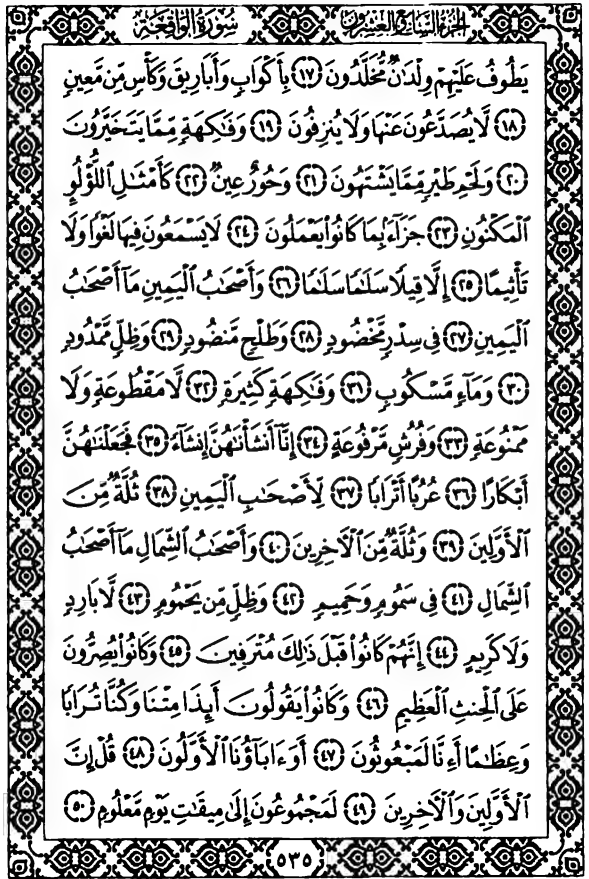 الجزء السابع والعشرون
سورة الواقعة
يَطُوفُ عَلَيْهِمْ وِلْدَٰنٌ مُّخَلَّدُونَ ١٧ بِأَكْوَابٍ وَأَبَارِيقَ وَكَأْسٍ مِّن مَّعِينٍ
١٨ لَّا يُصَدَّعُونَ عَنْهَا وَلَا يُنزِفُونَ ١٩ وَفَٰكِهَةٍ مِّمَّا يَتَخَيَّرُونَ
٢٠ وَلَحْمِ طَيْرٍ مِّمَّا يَشْتَهُونَ ٢١ وَحُورٌ عِينٌ ٢٢ كَأَمْثَٰلِ ٱللُّؤْلُؤِ
ٱلْمَكْنُونِ ٢٣ جَزَآءًۢ بِمَا كَانُوا۟ يَعْمَلُونَ ٢٤ لَا يَسْمَعُونَ فِيهَا لَغْوًا وَلَا
تَأْثِيمًا ٢٥ إِلَّا قِيلًا سَلَٰمًا سَلَٰمًا ٢٦ وَأَصْحَٰبُ ٱلْيَمِينِ مَآ أَصْحَٰبُ
ٱلْيَمِينِ ٢٧ فِى سِدْرٍ مَّخْضُودٍ ٢٨ وَطَلْحٍ مَّنضُودٍ ٢٩ وَظِلٍّ مَّمْدُودٍ
٣٠ وَمَآءٍ مَّسْكُوبٍ ٣١ وَفَٰكِهَةٍ كَثِيرَةٍ ٣٢ لَّا مَقْطُوعَةٍ وَلَا
مَمْنُوعَةٍ ٣٣ وَفُرُشٍ مَّرْفُوعَةٍ ٣٤ إِنَّآ أَنشَأْنَٰهُنَّ إِنشَآءً ٣٥ فَجَعَلْنَٰهُنَّ
أَبْكَارًا ٣٦ عُرُبًا أَتْرَابًا ٣٧ لِّأَصْحَٰبِ ٱلْيَمِينِ ٣٨ ثُلَّةٌ مِّنَ
ٱلْأَوَّلِينَ ٣٩ وَثُلَّةٌ مِّنَ ٱلْءَاخِرِينَ ٤٠ وَأَصْحَٰبُ ٱلشِّمَالِ مَآ أَصْحَٰبُ
ٱلشِّمَالِ ٤١ فِى سَمُومٍ وَحَمِيمٍ ٤٢ وَظِلٍّ مِّن يَحْمُومٍ ٤٣ لَّا بَارِدٍ
وَلَا كَرِيمٍ ٤٤ إِنَّهُمْ كَانُوا۟ قَبْلَ ذَٰلِكَ مُتْرَفِينَ ٤٥ وَكَانُوا۟ يُصِرُّونَ
عَلَى ٱلْحِنثِ ٱلْعَظِيمِ ٤٦ وَكَانُوا۟ يَقُولُونَ أَئِذَا مِتْنَا وَكُنَّا تُرَابًا
وَعِظَٰمًا أَءِنَّا لَمَبْعُوثُونَ ٤٧ أَوَءَابَآؤُنَا ٱلْأَوَّلُونَ ٤٨ قُلْ إِنَّ
ٱلْأَوَّلِينَ وَٱلْءَاخِرِينَ ٤٩ لَمَجْمُوعُونَ إِلَىٰ مِيقَٰتِ يَوْمٍ مَّعْلُومٍ ٥٠
٥٣٥